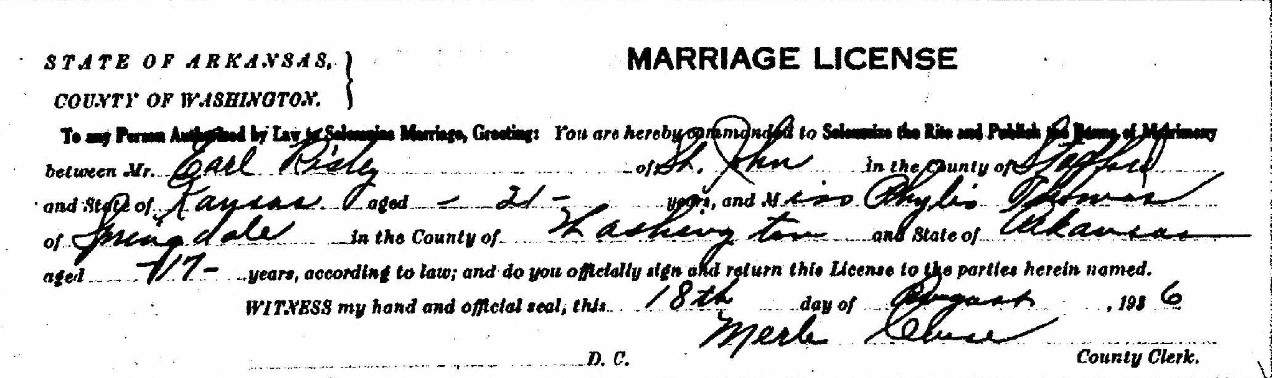 STATE OF ARKANSAS, }
MARRIAGE LICENSE
COUNTY OF WASHINGTON.
To any Person Authorized by Law to Solemnize Marriage, Greeting: You are hereby commanded to Solemnize the Rite and Publish the Banns of Matrimony
between Mr. Earl Risley of St. John in the County of Stafford
and State of Kansas aged - 21 - years, and Miss Phylis Thomas
of Springdale in the County of Washington and State of Arkansas
aged -17- years, according to law; and do you officially sign and return this License to the parties herein named.
WITNESS my hand and official seal, this 18th day of August, 1936
Merle
D. C. County Clerk.